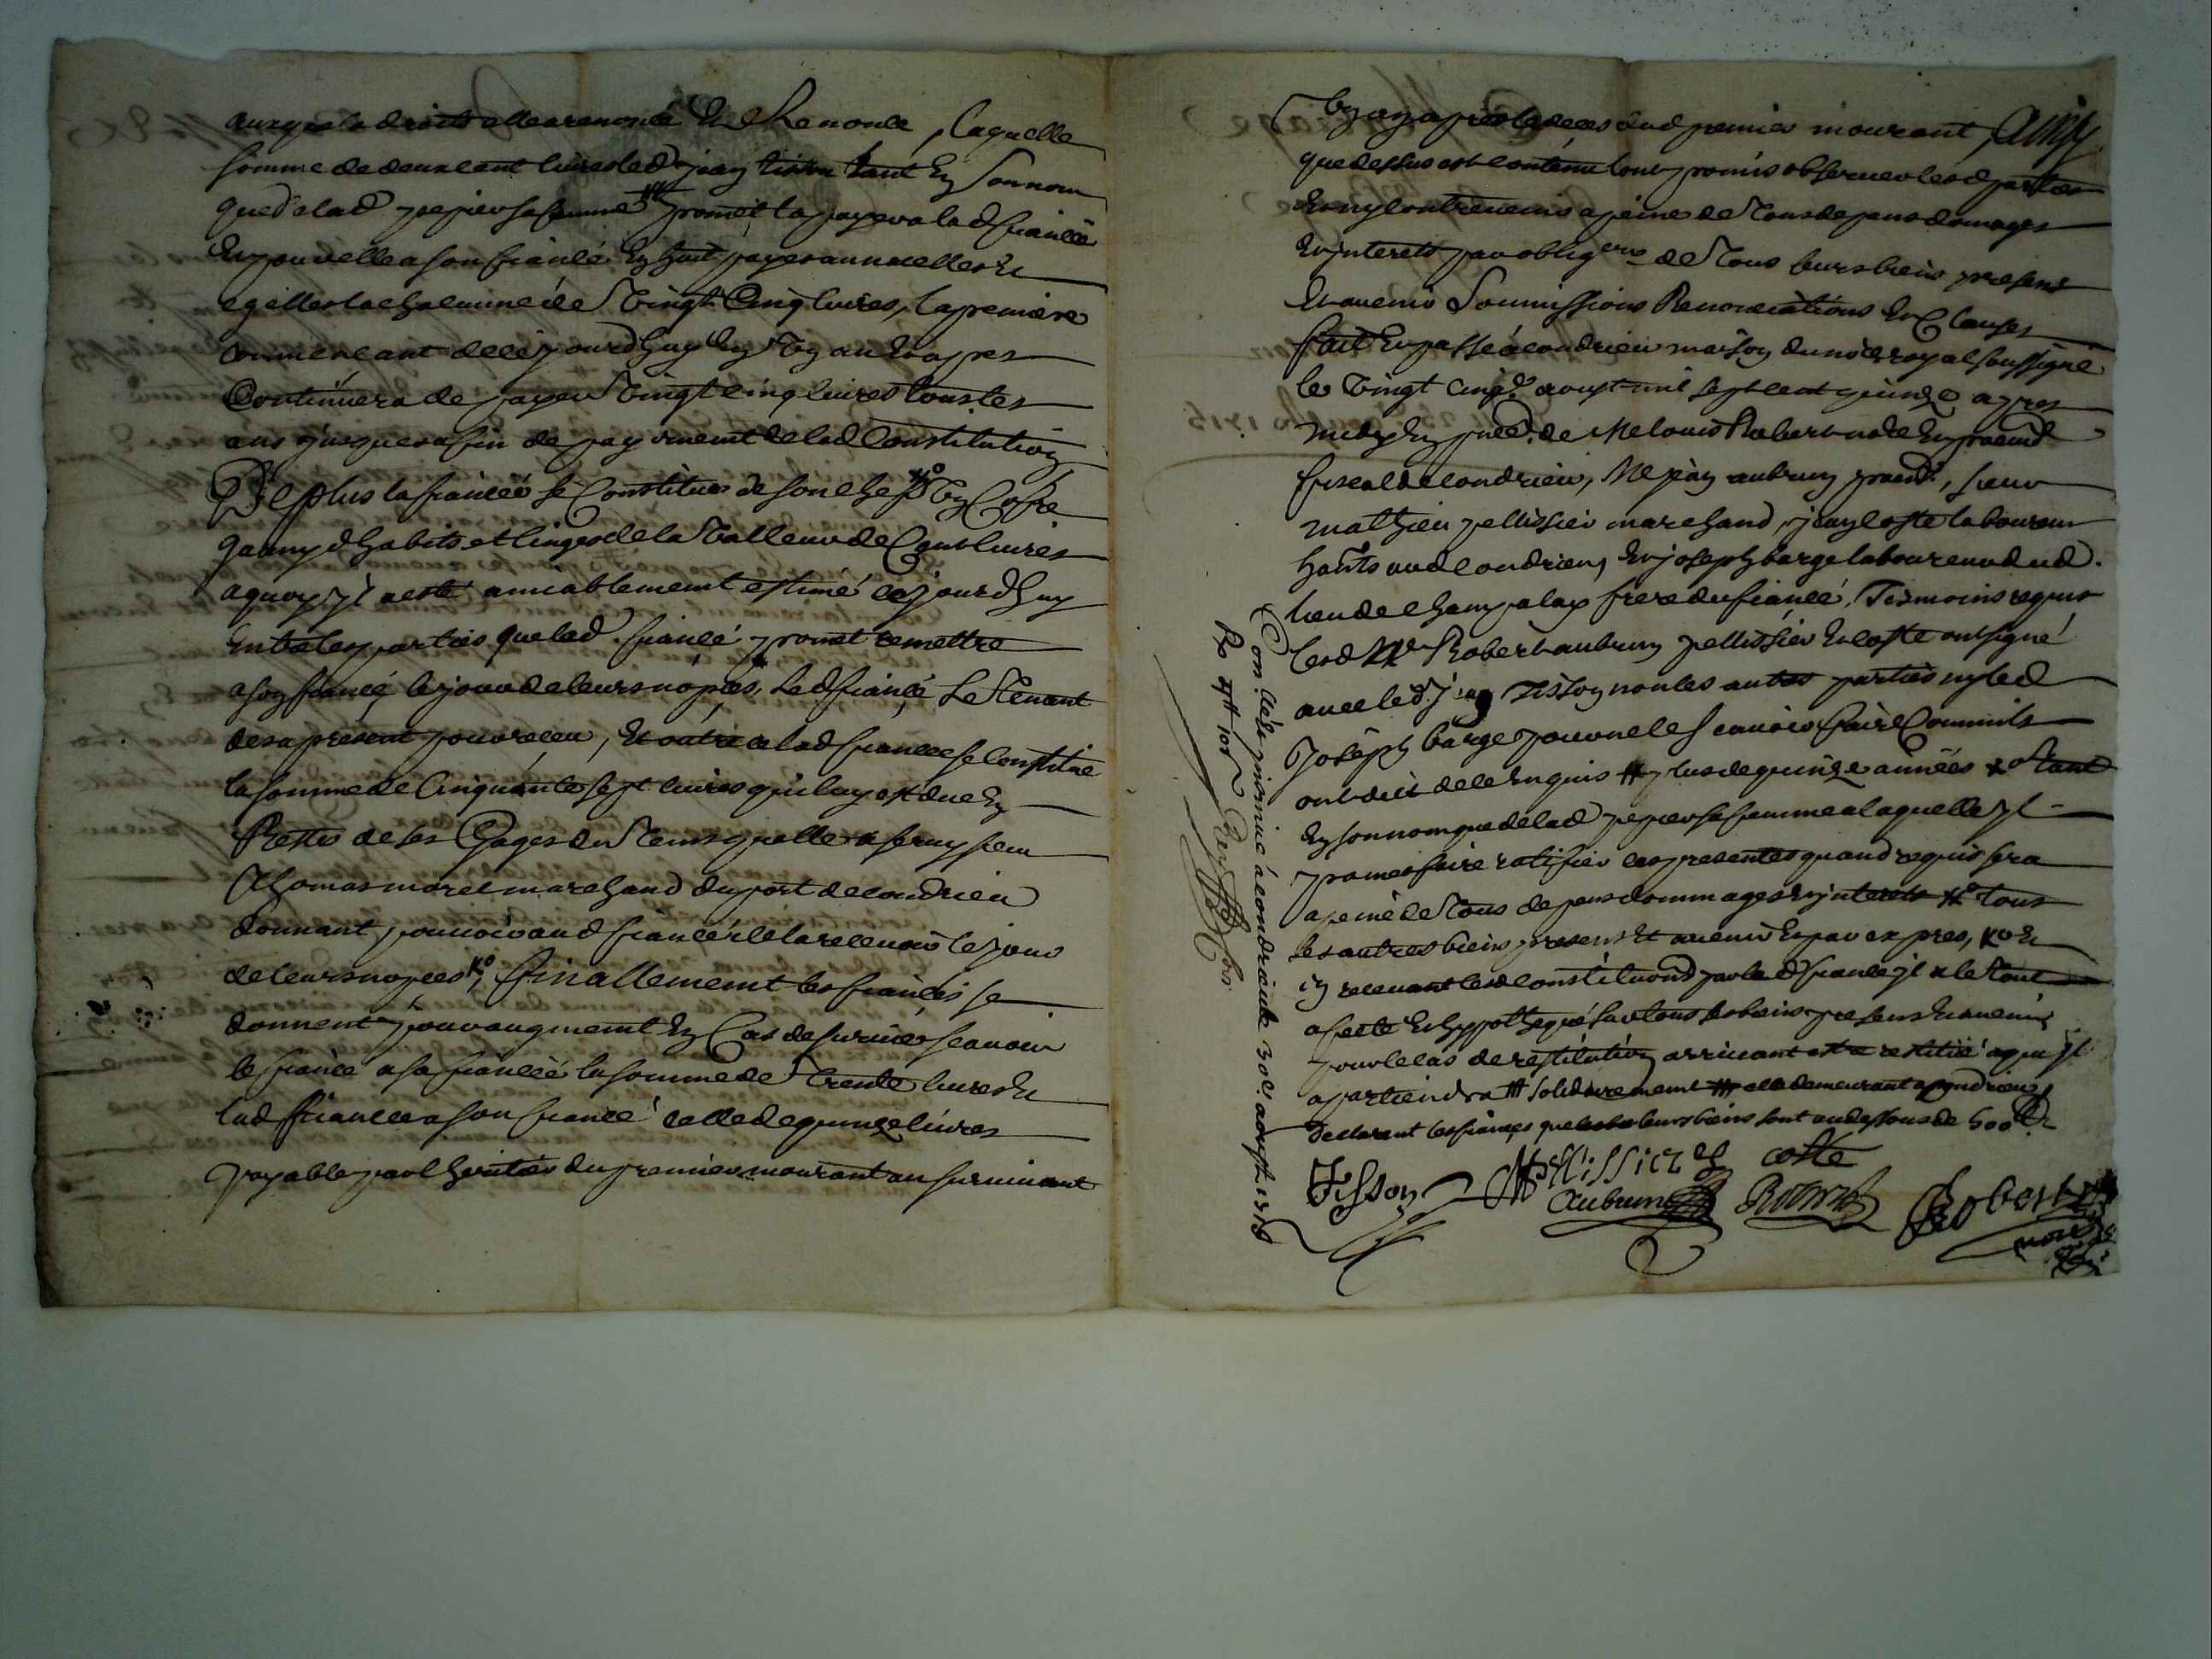 auxquels droits elle a renoncé Et Renonce, Laquelle
somme de deux cent livres led jean tisson tant En Son nom
que de lad pepier sa femme promet la payer a lad fiancée
Et pour elle a son fiancé En huit payes annuelles Et
egalles la chacunne de Vingt Cinq livres, la premiere
commencant de ce jourdhuy En Un an Et apres
Continuera de payer Vingt cinq livres tous les
ans jusques a fin de payement de lad Constitution
De plus la fiancée se Constitue de son chef Un Coffre
garny dhabits et linges de la Valleur de Cent livres
a quoy jl a esté amiablement estimé cejourdhuy
Entre les parties que lad. fiancée promet remettre
a son fiancé le jour de leurs nopces, led fiancé Le Tenant
des a present pour receu, Et outre ce lad fiancée se Constitue
la somme de Cinquante sept livres qui luy est due En
Reste de ses Gages du Tems quelle a servy sieur
Thomas morel marchand du port de condrieu
donnant pouvoir aud fiancé de la recevoir le jour
de leurs nopces, finallement les fiancés se
donnent pour augment En Cas de survie scavoir
le fiancé a sa fiancée la somme de Trente livres Et
lad fiancée a son fiancé celle de quinze livres
payable par lheritier du premier mourant au survivant
Un an apres le deces dud premier mourant, Ainsy
que dessus est contenu lont promis observer lesd parties
Et ny contrevenir a peine de Tous depans domages
Et jnterets par obligons de Tous leurs biens presens
Et avenir Soumissions Renonciations Et Clauses
fait Et passé a condrieu maison du notre royal soussigné
le Vingt cinqe aoust mil sept cent quinze apres
midy En pnce de Me louis Robert notre Et procur
fiscal de condrieu, Me jean aubrun pratn, sieur
mathieu pellissier marchand, jean coste laboureur
hants aud condrieu, Et joseph barge laboureur dud.
lieu de champalay frere du fiancé, Tesmoins requis
lesd Robert aubrun pellissier Et coste ont signé
avec led. jean Tisson non les autres parties ny led
Joseph barge pour ne le Scavoir faire Comme ils
ont dit de ce Enquis plus de quinze années tant
En son nom que de lad pepier sa femme a laquelle jl
promet faire ratifier ces presentes quand requis sera
a peine de Tous depens dommages Et jnterets tous
ses autres biens presens Et avenir Et par expres, Et
En recevant lesd constitutions par led fiancé jl a le tout
afecté Et hyppothequé sur tous ses biens presens Et avenir
pour le cas de restitution arrivant estre restitué a qui jl
apartiendra solidairement demeurant a condrieu
declarant les fiancés que leurs biens sont au dessous de 500
Tisson Mpellissier coste
Aubrun Robert Robert
Con.lé Et jnsinué a condrieu le 30e. aoust 1715